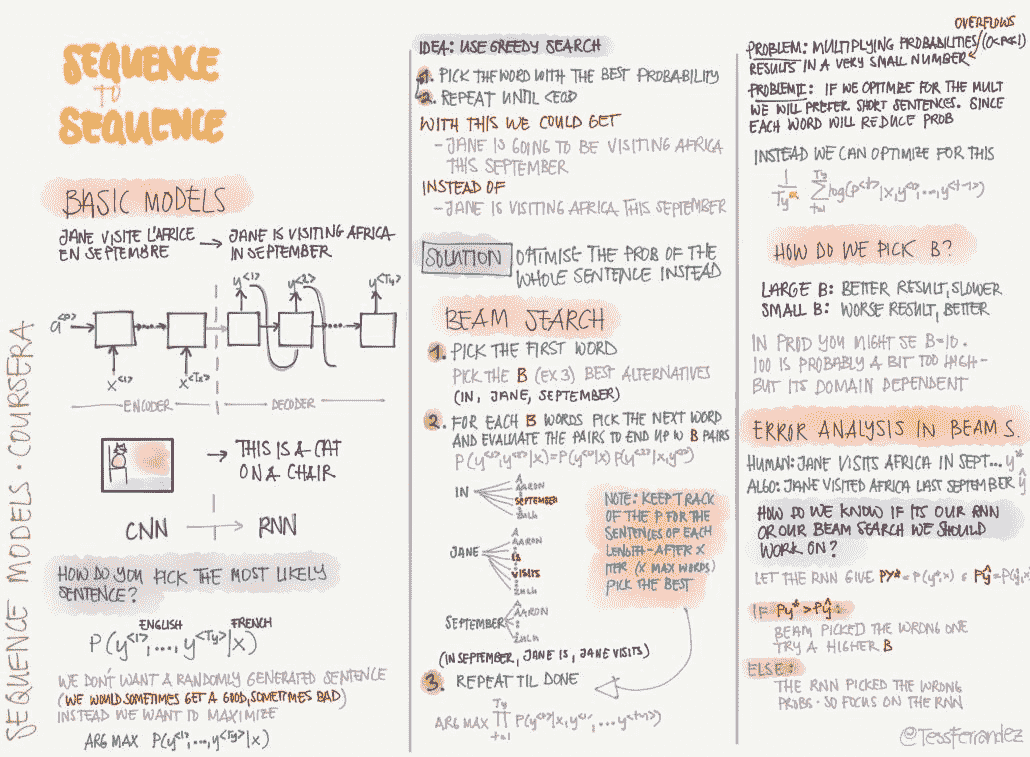 SEQUENCE
TO
SEQUENCE
BASIC MODELS
JANE VISITE L'AFRICE
EN SEPTEMBRE
→ JANE IS VISITING AFRICA
IN SEPTEMBER
y<1> y<2> y<Ty>
a<0>
...
...
x<1> x<Tx>
ENCODER DECODER
→ THIS IS A CAT
ON A CHAIR
CNN → RNN
HOW DO YOU PICK THE MOST LIKELY
SENTENCE?
ENGLISH FRENCH
P(y<1>,...,y<Ty>|x)
WE DON'T WANT A RANDOMLY GENERATED SENTENCE
(WE WOULD SOMETIMES GET A GOOD, SOMETIMES BAD)
INSTEAD WE WANT TO MAXIMIZE
ARG MAX P(y<1>,...,y<Ty>|x)
SEQUENCE MODELS · COURSERA
IDEA: USE GREEDY SEARCH
1. PICK THE WORD WITH THE BEST PROBABILITY
2. REPEAT UNTIL <EOD
WITH THIS WE COULD GET
- JANE IS GOING TO BE VISITING AFRICA
THIS SEPTEMBER
INSTEAD OF
- JANE IS VISITING AFRICA THIS SEPTEMBER
SOLUTION OPTIMISE THE PROB OF THE
WHOLE SENTENCE INSTEAD
BEAM SEARCH
1. PICK THE FIRST WORD
PICK THE B (EX 3) BEST ALTERNATIVES
(IN, JANE, SEPTEMBER)
2. FOR EACH B WORDS PICK THE NEXT WORD
AND EVALUATE THE PAIRS TO END UP W B PAIRS
P(y<1>,y<2>|x)=P(y<1>|x) P(y<2>|x,y<1>)
IN
A
AARON
SEPTEMBER
ZULU
JANE
A
AARON
IS
VISITS
ZULU
SEPTEMBER
A
AARON
ZULU
NOTE: KEEP TRACK
OF THE P FOR THE
SENTENCES OF EACH
LENGTH - AFTER X
ITER (X MAX WORDS)
PICK THE BEST
(IN SEPTEMBER, JANE IS, JANE VISITS)
3. REPEAT TIL DONE
ARG MAX ∏ Ty t=1 P(y<t>|x,y<1>,...y<t-1>)
OVERFLOWS
PROBLEM: MULTIPLYING PROBABILITIES (0<P≪1)
RESULTS IN A VERY SMALL NUMBER
PROBLEM II: IF WE OPTIMIZE FOR THE MULT
WE WILL PREFER SHORT SENTENCES. SINCE
EACH WORD WILL REDUCE PROB
INSTEAD WE CAN OPTIMIZE FOR THIS
1/Ty^α Σ Ty t=1 log(P<t>|x,y<1>,...,y<t-1>)
HOW DO WE PICK B?
LARGE B: BETTER RESULT, SLOWER
SMALL B: WORSE RESULT, BETTER
IN PROD YOU MIGHT SE B=10.
100 IS PROBABLY A BIT TOO HIGH -
BUT ITS DOMAIN DEPENDENT
ERROR ANALYSIS IN BEAM S.
HUMAN: JANE VISITS AFRICA IN SEPT... y*
ALGO: JANE VISITED AFRICA LAST SEPTEMBER ŷ
HOW DO WE KNOW IF ITS OUR RNN
OR OUR BEAM SEARCH WE SHOULD
WORK ON?
LET THE RNN GIVE Py*=P(y*,x) & Pŷ=P(ŷ,x)
IF Py*>Pŷ:
BEAM PICKED THE WRONG ONE
TRY A HIGHER B
ELSE:
THE RNN PICKED THE WRONG
PROBS. SO FOCUS ON THE RNN
@TessFerrandez